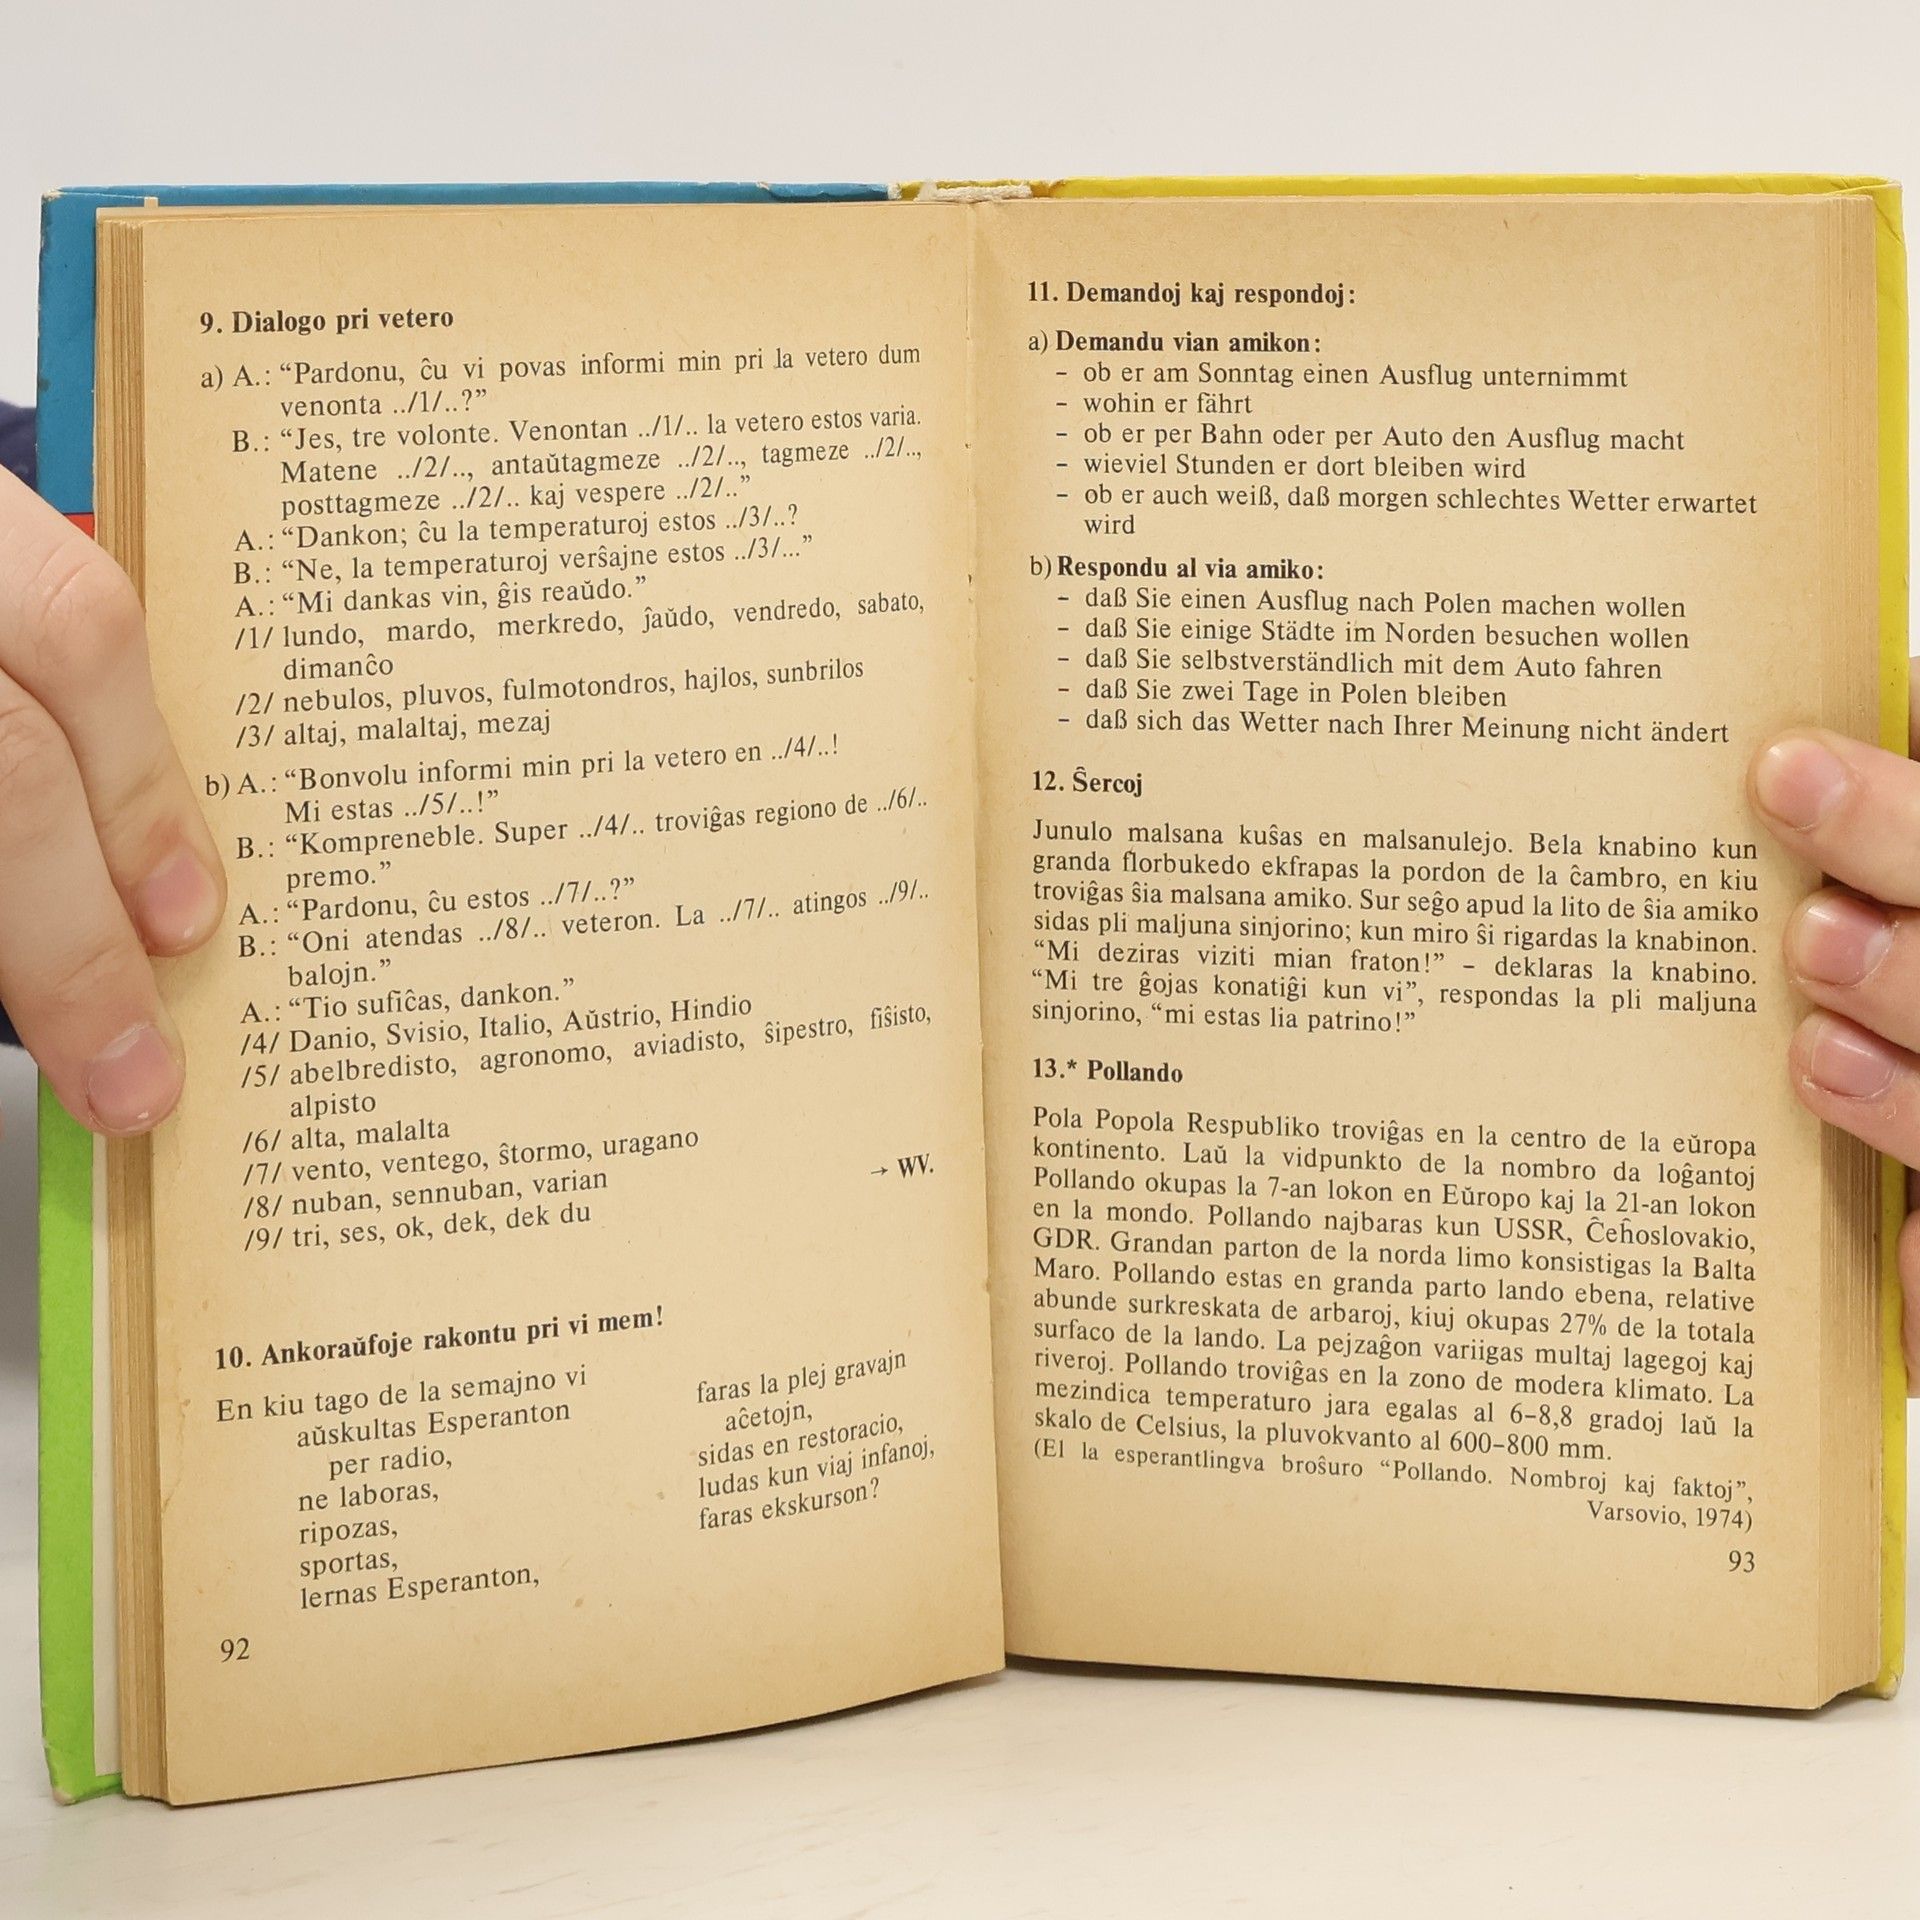 9. Dialogo pri vetero
a) A.: “Pardonu, ĉu vi povas informi min pri la vetero dum
venonta ../1/..?”
B.: “Jes, tre volonte. Venontan ../1/.. la vetero estos varia.
Matene ../2/.., antaŭtagmeze ../2/.., tagmeze ../2/..,
posttagmeze ../2/.. kaj vespere ../2/..”
A.: “Dankon; ĉu la temperaturoj estos ../3/..?
B.: “Ne, la temperaturoj verŝajne estos ../3/...”
A.: “Mi dankas vin, ĝis reaŭdo.”
/1/ lundo, mardo, merkredo, ĵaŭdo, vendredo, sabato,
dimanĉo
/2/ nebulos, pluvos, fulmotondros, hajlos, sunbrilos
/3/ altaj, malaltaj, mezaj
b) A.: “Bonvolu informi min pri la vetero en ../4/..!
Mi estas ../5/..!”
B.: “Kompreneble. Super ../4/.. troviĝas regiono de ../6/..
premo.”
A.: “Pardonu, ĉu estos ../7/..?”
B.: “Oni atendas ../8/.. veteron. La ../7/.. atingos ../9/..
balojn.”
A.: “Tio sufiĉas, dankon.”
/4/ Danio, Svisio, Italio, Aŭstrio, Hindio
/5/ abelbredisto, agronomo, aviadisto, ŝipestro, fiŝisto,
alpisto
/6/ alta, malalta
/7/ vento, ventego, ŝtormo, uragano
/8/ nuban, sennuban, varian
/9/ tri, ses, ok, dek, dek du
→ WV.
10. Ankoraŭfoje rakontu pri vi mem!
En kiu tago de la semajno vi
aŭskultas Esperanton
per radio,
ne laboras,
ripozas,
sportas,
lernas Esperanton,
faras la plej gravajn
aĉetojn,
sidas en restoracio,
ludas kun viaj infanoj,
faras ekskurson?
92
11. Demandoj kaj respondoj:
a) Demandu vian amikon:
– ob er am Sonntag einen Ausflug unternimmt
– wohin er fährt
– ob er per Bahn oder per Auto den Ausflug macht
– wieviel Stunden er dort bleiben wird
– ob er auch weiß, daß morgen schlechtes Wetter erwartet
wird
b) Respondu al via amiko:
– daß Sie einen Ausflug nach Polen machen wollen
– daß Sie einige Städte im Norden besuchen wollen
– daß Sie selbstverständlich mit dem Auto fahren
– daß Sie zwei Tage in Polen bleiben
– daß sich das Wetter nach Ihrer Meinung nicht ändert
12. Ŝercoj
Junulo malsana kuŝas en malsanulejo. Bela knabino kun
granda florbukedo ekfrapas la pordon de la ĉambro, en kiu
troviĝas ŝia malsana amiko. Sur seĝo apud la lito de ŝia amiko
sidas pli maljuna sinjorino; kun miro ŝi rigardas la knabinon.
“Mi deziras viziti mian fraton!” – deklaras la knabino.
“Mi tre ĝojas konatiĝi kun vi”, respondas la pli maljuna
sinjorino, “mi estas lia patrino!”
13.* Pollando
Pola Popola Respubliko troviĝas en la centro de la eŭropa
kontinento. Laŭ la vidpunkto de la nombro da loĝantoj
Pollando okupas la 7-an lokon en Eŭropo kaj la 21-an lokon
en la mondo. Pollando najbaras kun USSR, Ĉeĥoslovakio,
GDR. Grandan parton de la norda limo konsistigas la Balta
Maro. Pollando estas en granda parto lando ebena, relative
abunde surkreskata de arbaroj, kiuj okupas 27% de la totala
surfaco de la lando. La pejzaĝon variigas multaj lagegoj kaj
riveroj. Pollando troviĝas en la zono de modera klimato. La
mezindica temperaturo jara egalas al 6–8,8 gradoj laŭ la
skalo de Celsius, la pluvokvanto al 600–800 mm.
(El la esperantlingva broŝuro “Pollando. Nombroj kaj faktoj”,
Varsovio, 1974)
93